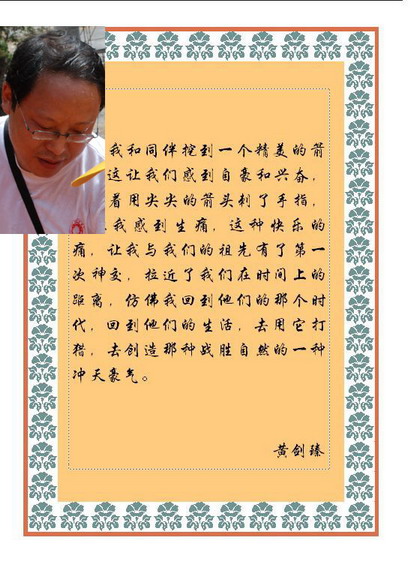 我和同伴挖到一个精美的箭
这让我们感到自豪和兴奋，
着用尖尖的箭头刺了手指，
我感到生痛，这种快乐的
痛，让我与我们的祖先有了第一
次神交，拉近了我们在时间上的
距离，仿佛我回到他们的那个时
代，回到他们的生活，去用它打
猎，去创造那种战胜自然的一种
冲天豪气。
黄剑臻